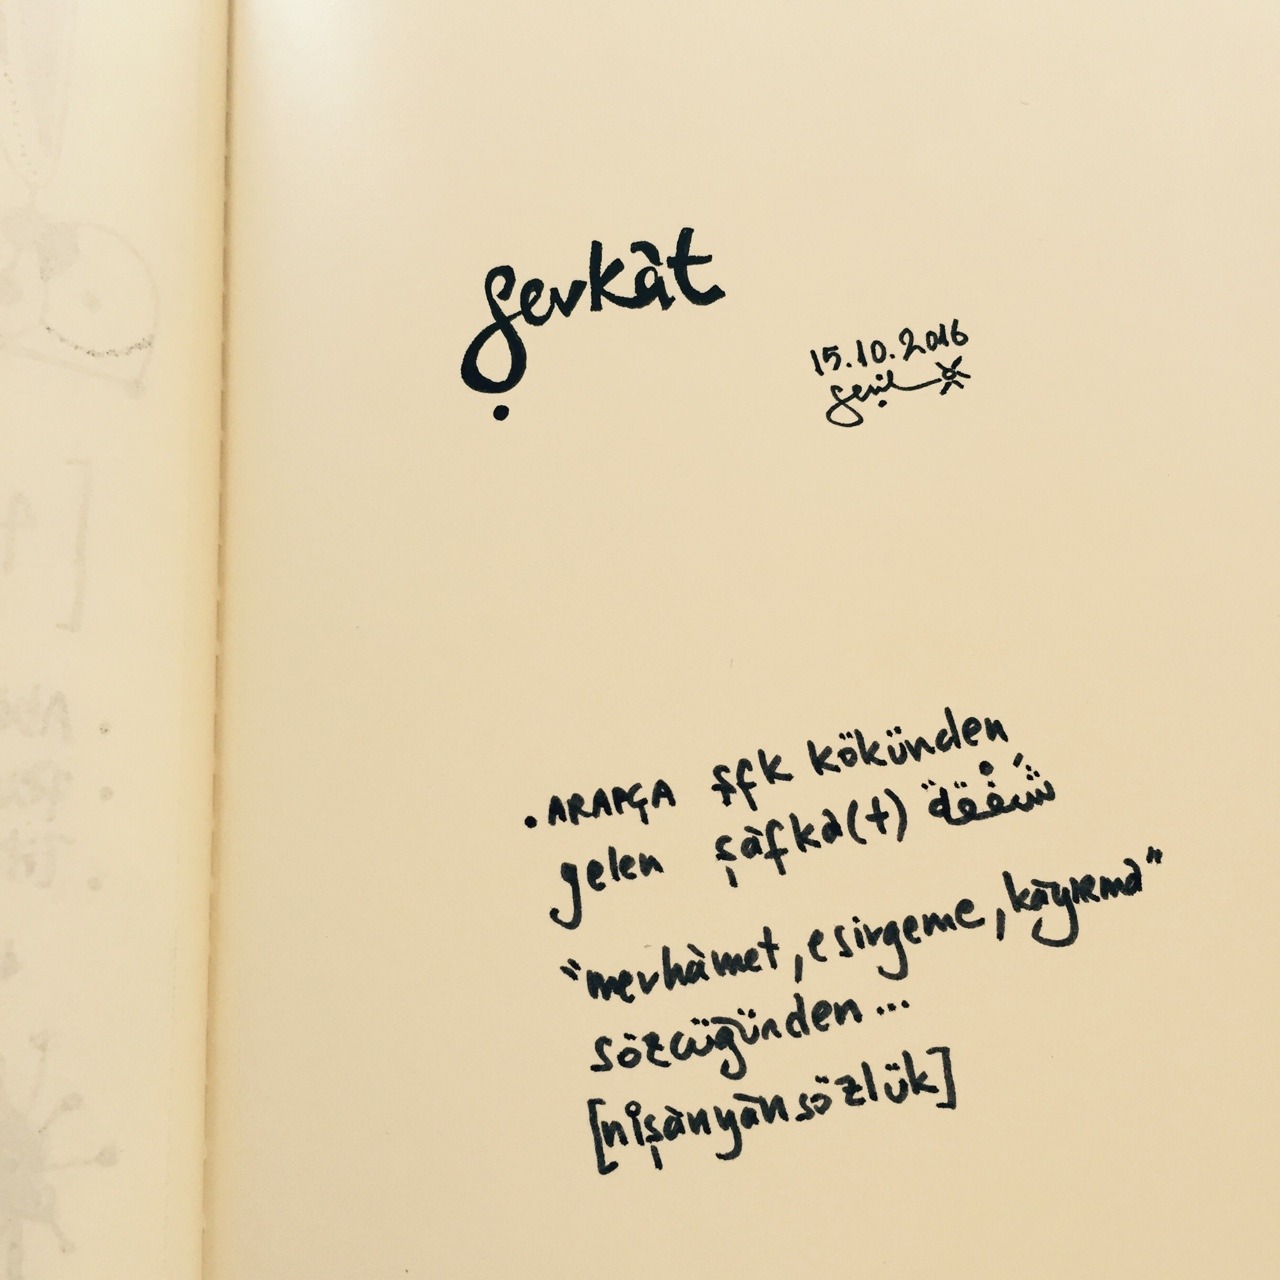 şevkat
15.10.2016
. ARAPÇA şfk kökünden
gelen şafka(t) شَفْقة
"merhamet, esirgeme, kayırma"
sözcüğünden...
[nişanyansözlük]